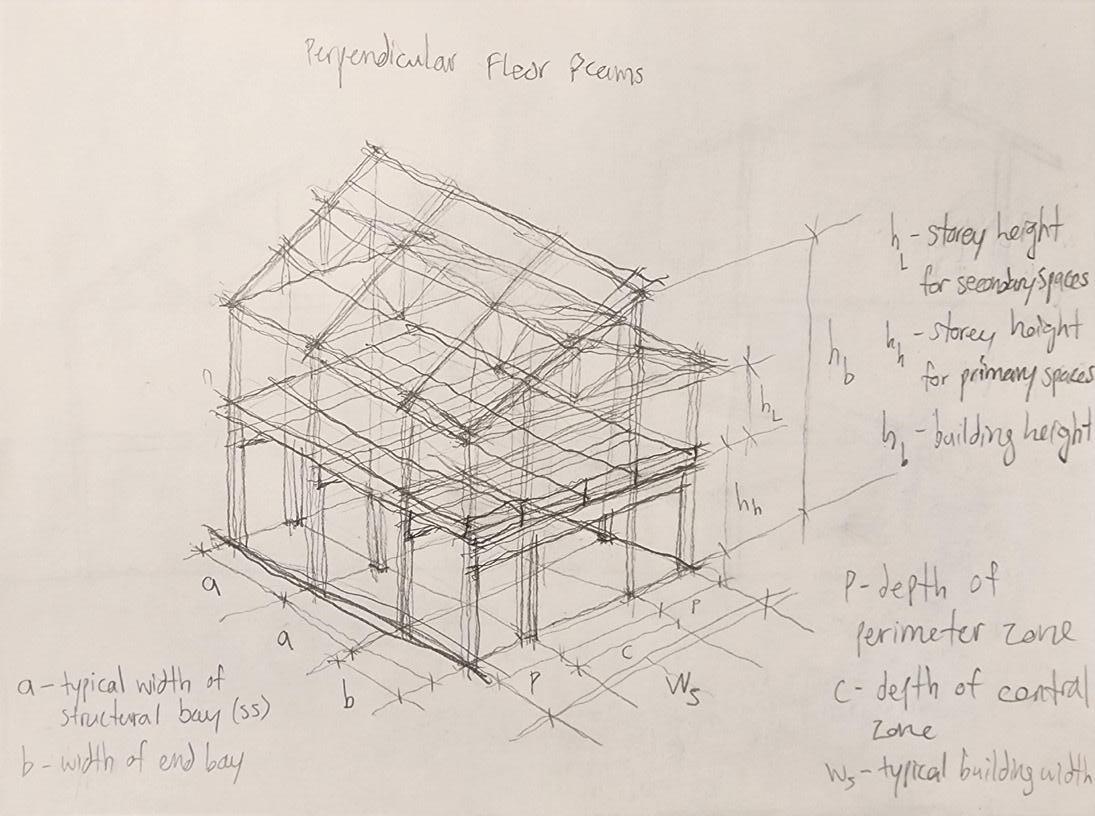 Perpendicular Floor Beams
h_L - storey height
for secondary spaces
h_h - storey height
for primary spaces
h_b - building height
h_b
h_L
h_h
P - depth of
perimeter zone
c - depth of central
zone
W_s - typical building width
a
a
b
P
c
P
W_s
a - typical width of
structural bay (ss)
b - width of end bay